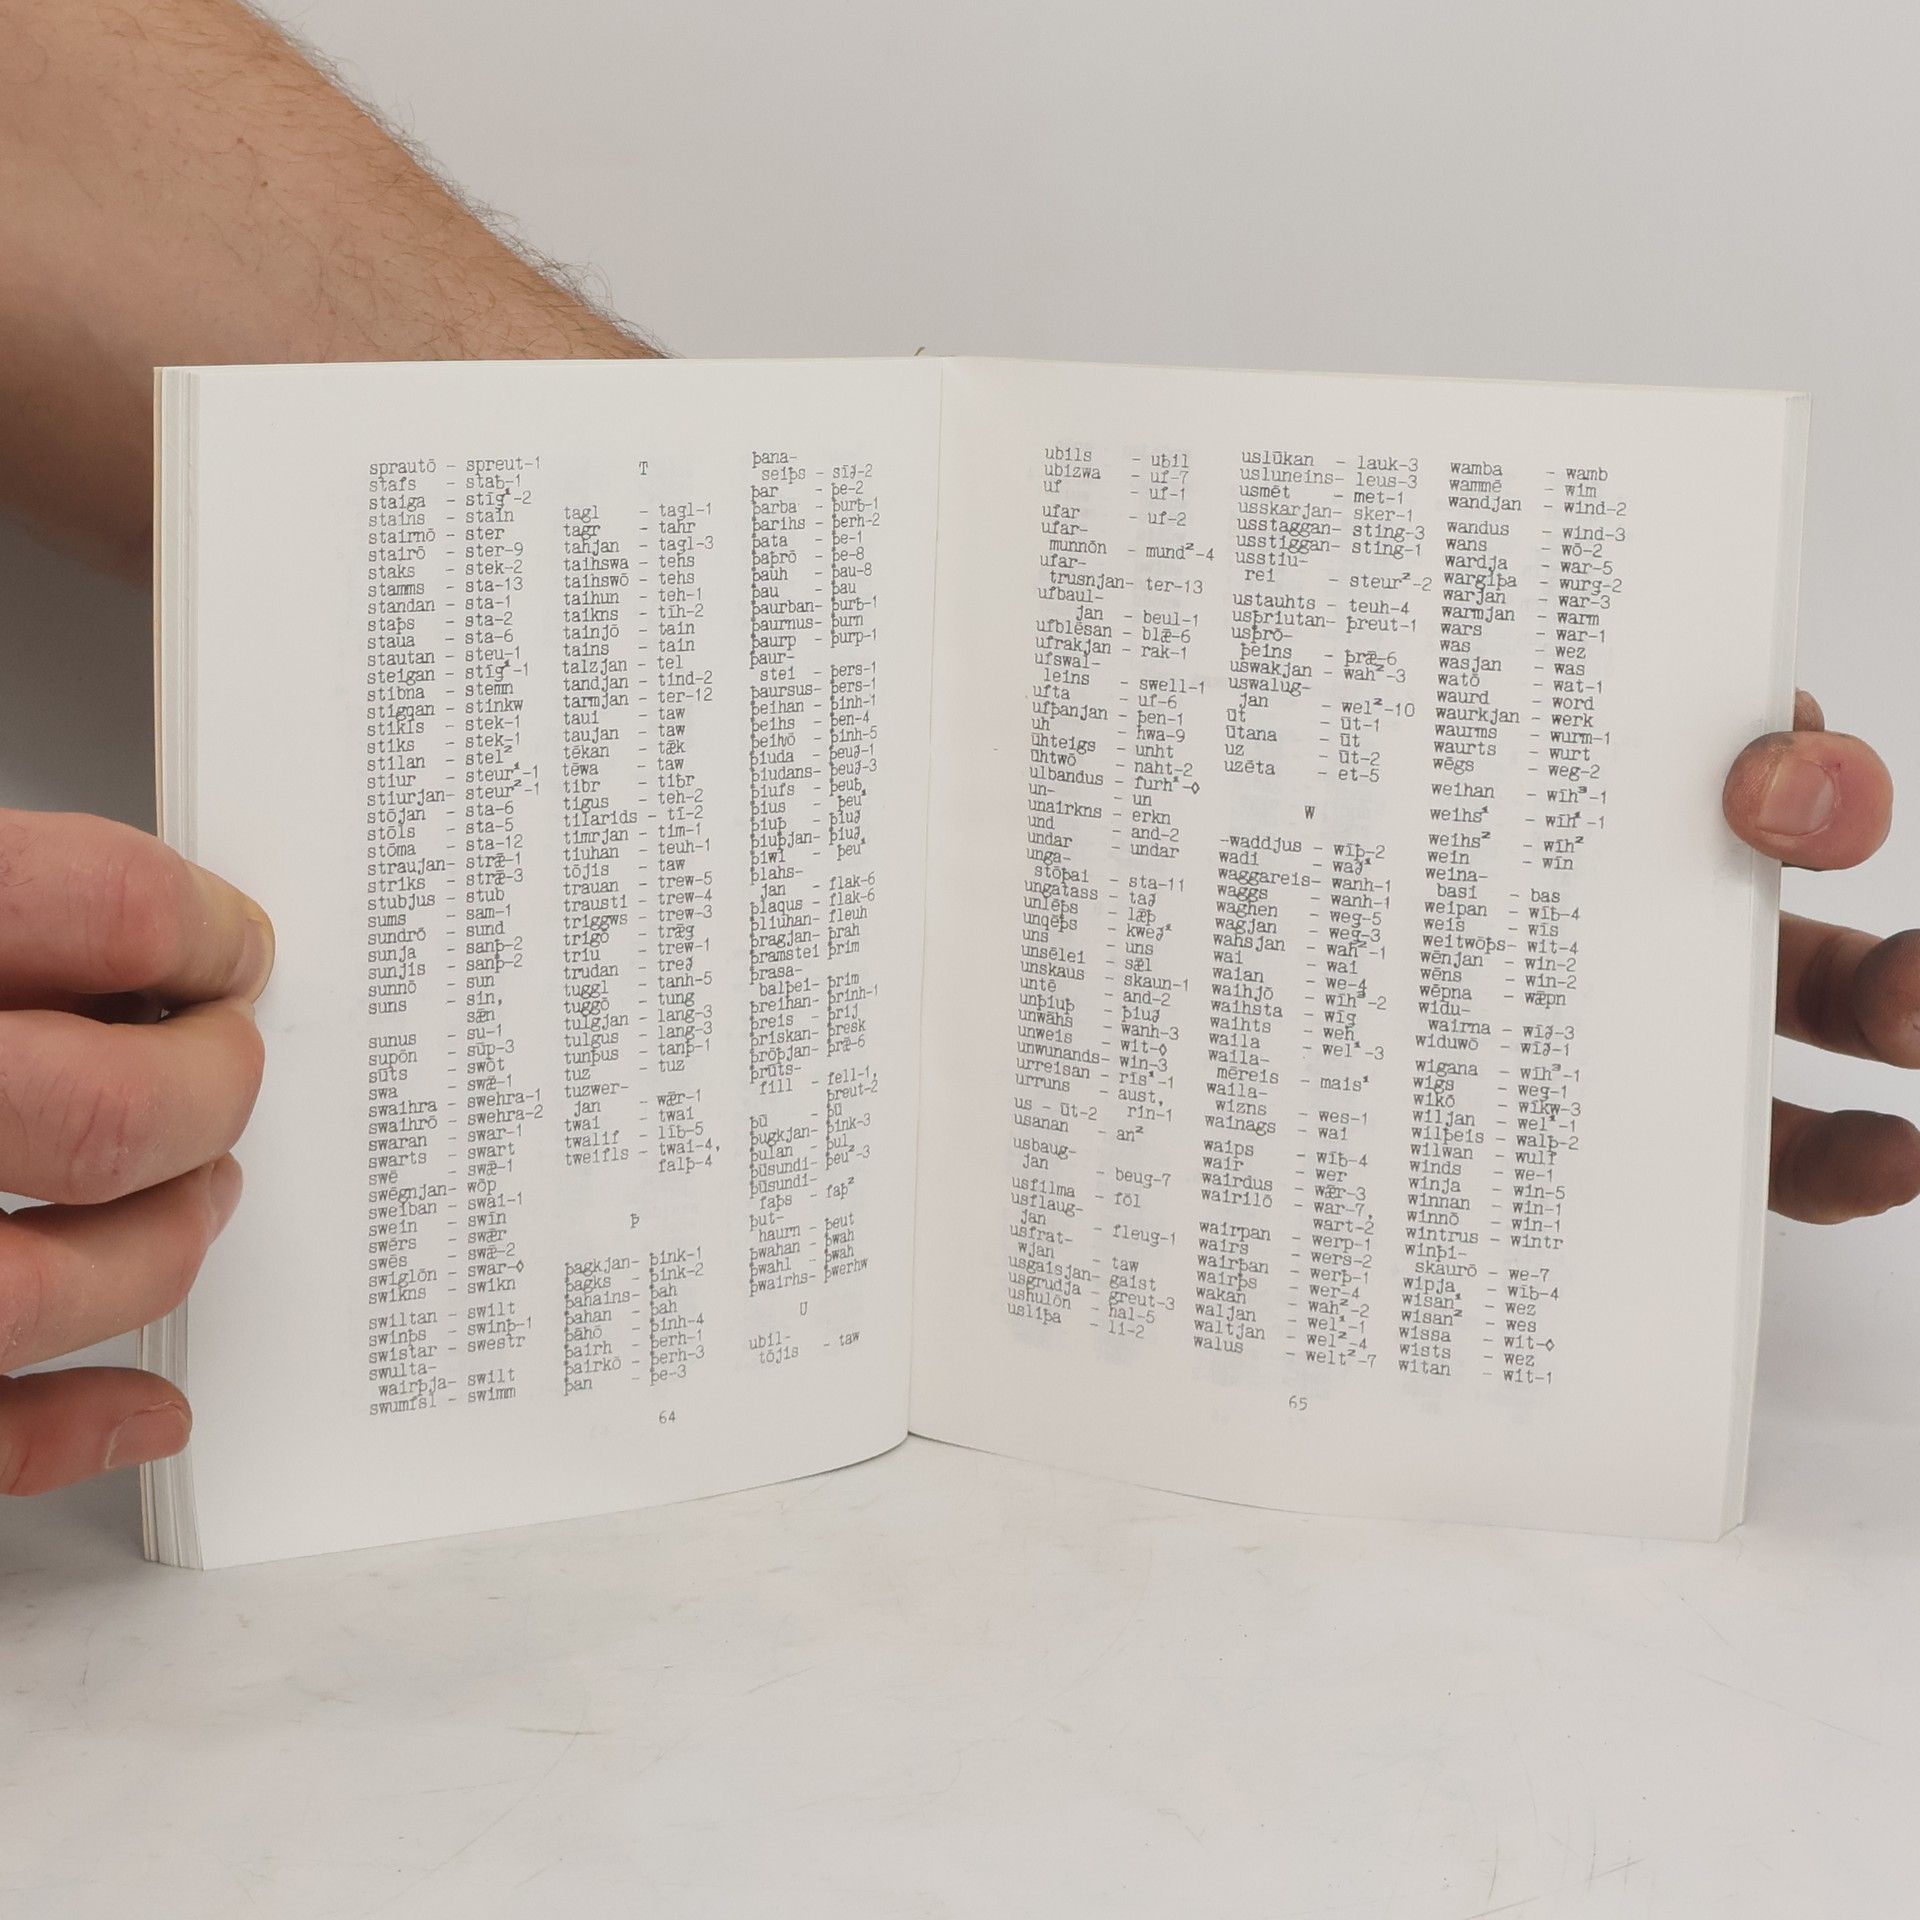 sprautō - spreut-1
stafs - stab-1
staiga - stīg¹-2
stains - stain
stairnō - ster
stairō - ster-9
staks - stek-2
stamms - sta-13
standan - sta-1
staþs - sta-2
staua - sta-6
stautan - steu-1
steigan - stīg¹-1
stibna - stemn
stigqan - stinkw
stikls - stek-1
stiks - stek-1
stilan - stel²
stiur - steur¹-1
stiurjan- steur²-1
stōjan - sta-6
stōls - sta-5
stōma - sta-12
straujan- strǣ-1
striks - strǣ-3
stubjus - stub
sums - sam-1
sundrō - sund
sunja - sanþ-2
sunjis - sanþ-2
sunnō - sun
suns - sin,
sǣn
sunus - su-1
supōn - sūp-3
sūts - swōt
swa - swǣ-1
swaihra - swehra-1
swaihrō - swehra-2
swaran - swar-1
swarts - swart
swē - swǣ-1
swēgnjan- wōp
sweiban - swai-1
swein - swīn
swērs - swǣr
swēs - swǣ-2
swiglōn - swar-◊
swikns - swikn
swiltan - swilt
swinþs - swinþ-1
swistar - swestr
swulta-
wairþja- swilt
swumfsl - swimm
T
tagl - tagl-1
tagr - tahr
tahjan - tagl-3
taihswa - tehs
taihswō - tehs
taihun - teh-1
taikns - tīh-2
tainjō - tain
tains - tain
talzjan - tel
tandjan - tind-2
tarmjan - ter-12
taui - taw
taujan - taw
tēkan - tǣk
tēwa - taw
tibr - tibr
tigus - teh-2
tilarids - tī-2
timrjan - tim-1
tiuhan - teuh-1
tōjis - taw
trauan - trew-5
trausti - trew-4
triggws - trew-3
trigō - trǣg
triu - trew-1
trudan - tred
tuggl - tanh-5
tuggō - tung
tulgjan - lang-3
tulgus - lang-3
tunþus - tanþ-1
tuz - tuz
tuzwer-
jan - wǣr-1
twai - twai
twalif - līb-5
tweifls - twai-4,
falþ-4
þ
þagkjan- þink-1
þagks - þink-2
þahains- þah
þahan - þah
þāhō - þinh-4
þairh - þerh-1
þairkō - þerh-3
þan - þe-3
þana-
seiþs - sīд-2
þar - þe-2
þarba - þurb-1
þarihs - þerh-2
þata - þe-1
þaþrō - þe-8
þauh - þau-8
þau - þau
þaurban- þurb-1
þaurnus- þurn
þaurp - þurp-1
þaur-
stei - þers-1
þaursus- þers-1
þeihan - þinh-1
þeihs - þen-4
þeiƕō - þinh-5
þiuda - þeuд-1
þiudans- þeuд-3
þiufs - þeub,
þius - þeu¹
þiuþ - þiuд
þiuþjan- þiuд
þiwi - þeu¹
þlahs-
jan - flak-6
þlaqus - flak-6
þliuhan- fleuh
þragjan- þrah
þramstei þrim
þrasa-
balþei- þrim
þreihan- þrinh-1
þreis - þrij
þriskan- þresk
þrōþjan- þrǣ-6
þrūts-
fill - fell-1,
þreut-2
þū - þū
þugkjan- þink-3
þulan - þul
þūsundi- þeu²-3
þūsundi-
faþs - faþ²
þut-
haurn - þeut
þwahan - þwah
þwahl - þwah
þwairhs- þwerhw
U
ubil-
tōjis - taw
64
ubils - ubil
ubizwa - uf-7
uf - uf-1
ufar - uf-2
ufar-
munnōn - mund²-4
ufar-
trusnjan- ter-13
ufbaul-
jan - beul-1
ufblēsan - blǣ-6
ufrakjan - rak-1
ufswal-
leins - swell-1
ufta - uf-6
ufþanjan - þen-1
uh - hwa-9
ūhteigs - unht
ūhtwō - naht-2
ulbandus - furh¹-◊
un- - un
unairkns - erkn
und - and-2
undar - undar
unga-
stōþai - sta-11
ungatass - taд
unlēþs - lǣþ
unqēþs - kweд¹
uns - uns
unsēlei - sǣl
unskaus - skaun-1
untē - and-2
unþiuþ - þiuд
unwāhs - wanh-3
unweis - wit-◊
unwunands- win-3
urreisan - rīs¹-1
urruns - aust,
rin-1
us - ūt-2
usanan - an²
usbaug-
jan - beug-7
usfilma - fōl
usflaug-
jan - fleug-1
usfrat-
wjan - taw
usgaisjan- gaist
usgrudja - greut-3
ushulōn - hal-5
usliþa - li-2
uslūkan - lauk-3
usluneins- leus-3
usmēt - met-1
usskarjan- sker-1
usstaggan- sting-3
usstiggan- sting-1
usstiu-
rei - steur²-2
ustauhts - teuh-4
usþriutan- þreut-1
usþrō-
þeins - þrǣ-6
uswakjan - wah²-3
uswalug-
jan - wel²-10
ūt - ūt-1
ūtana - ūt
uz - ūt-2
uzēta - et-5
W
-waddjus - wīþ-2
wadi - waд¹
waggareis- wanh-1
waggs - wanh-1
waghen - weg-5
wagjan - weg-3
wahsjan - wah²-1
wai - wai
waian - we-4
waihjō - wīh³-2
waihsta - wīg
waihts - weh
waila - wel¹-3
waila-
mēreis - mais¹
waila-
wizns - wes-1
wainags - wai
waips - wīb-4
wair - wer
wairdus - wǣr-3
wairilō - war-7,
wart-2
wairpan - werp-1
wairs - wers-2
wairþan - werþ-1
wairþs - wer-4
wakan - wah²-2
waljan - wel¹-1
waltjan - wel²-4
walus - welt²-7
wamba - wamb
wammē - wim
wandjan - wind-2
wandus - wind-3
wans - wō-2
wardja - war-5
wargiþa - wurg-2
warjan - war-3
warmjan - warm
wars - war-1
was - wez
wasjan - was
watō - wat-1
waurd - word
waurkjan - werk
waurms - wurm-1
waurts - wurt
wēgs - weg-2
weihan - wīh³-1
weihs¹ - wīh¹-1
weihs² - wīh²
wein - wīn
weina-
basi - bas
weipan - wīb-4
weis - wīs
weitwōþs- wit-4
wēnjan - win-2
wēns - win-2
wēpna - wǣpn
widu-
wairna - wīд-3
widuwō - wīд-1
wigana - wīh³-1
wigs - weg-1
wikō - wīkw-3
wiljan - wel¹-1
wilþeis - walþ-2
wilwan - wulf
winds - we-1
winja - win-5
winnan - win-1
winnō - win-1
wintrus - wintr
winþi-
skaurō - we-7
wipja - wīb-4
wisan¹ - wez
wisan² - wes
wissa - wit-◊
wists - wez
witan - wit-1
65